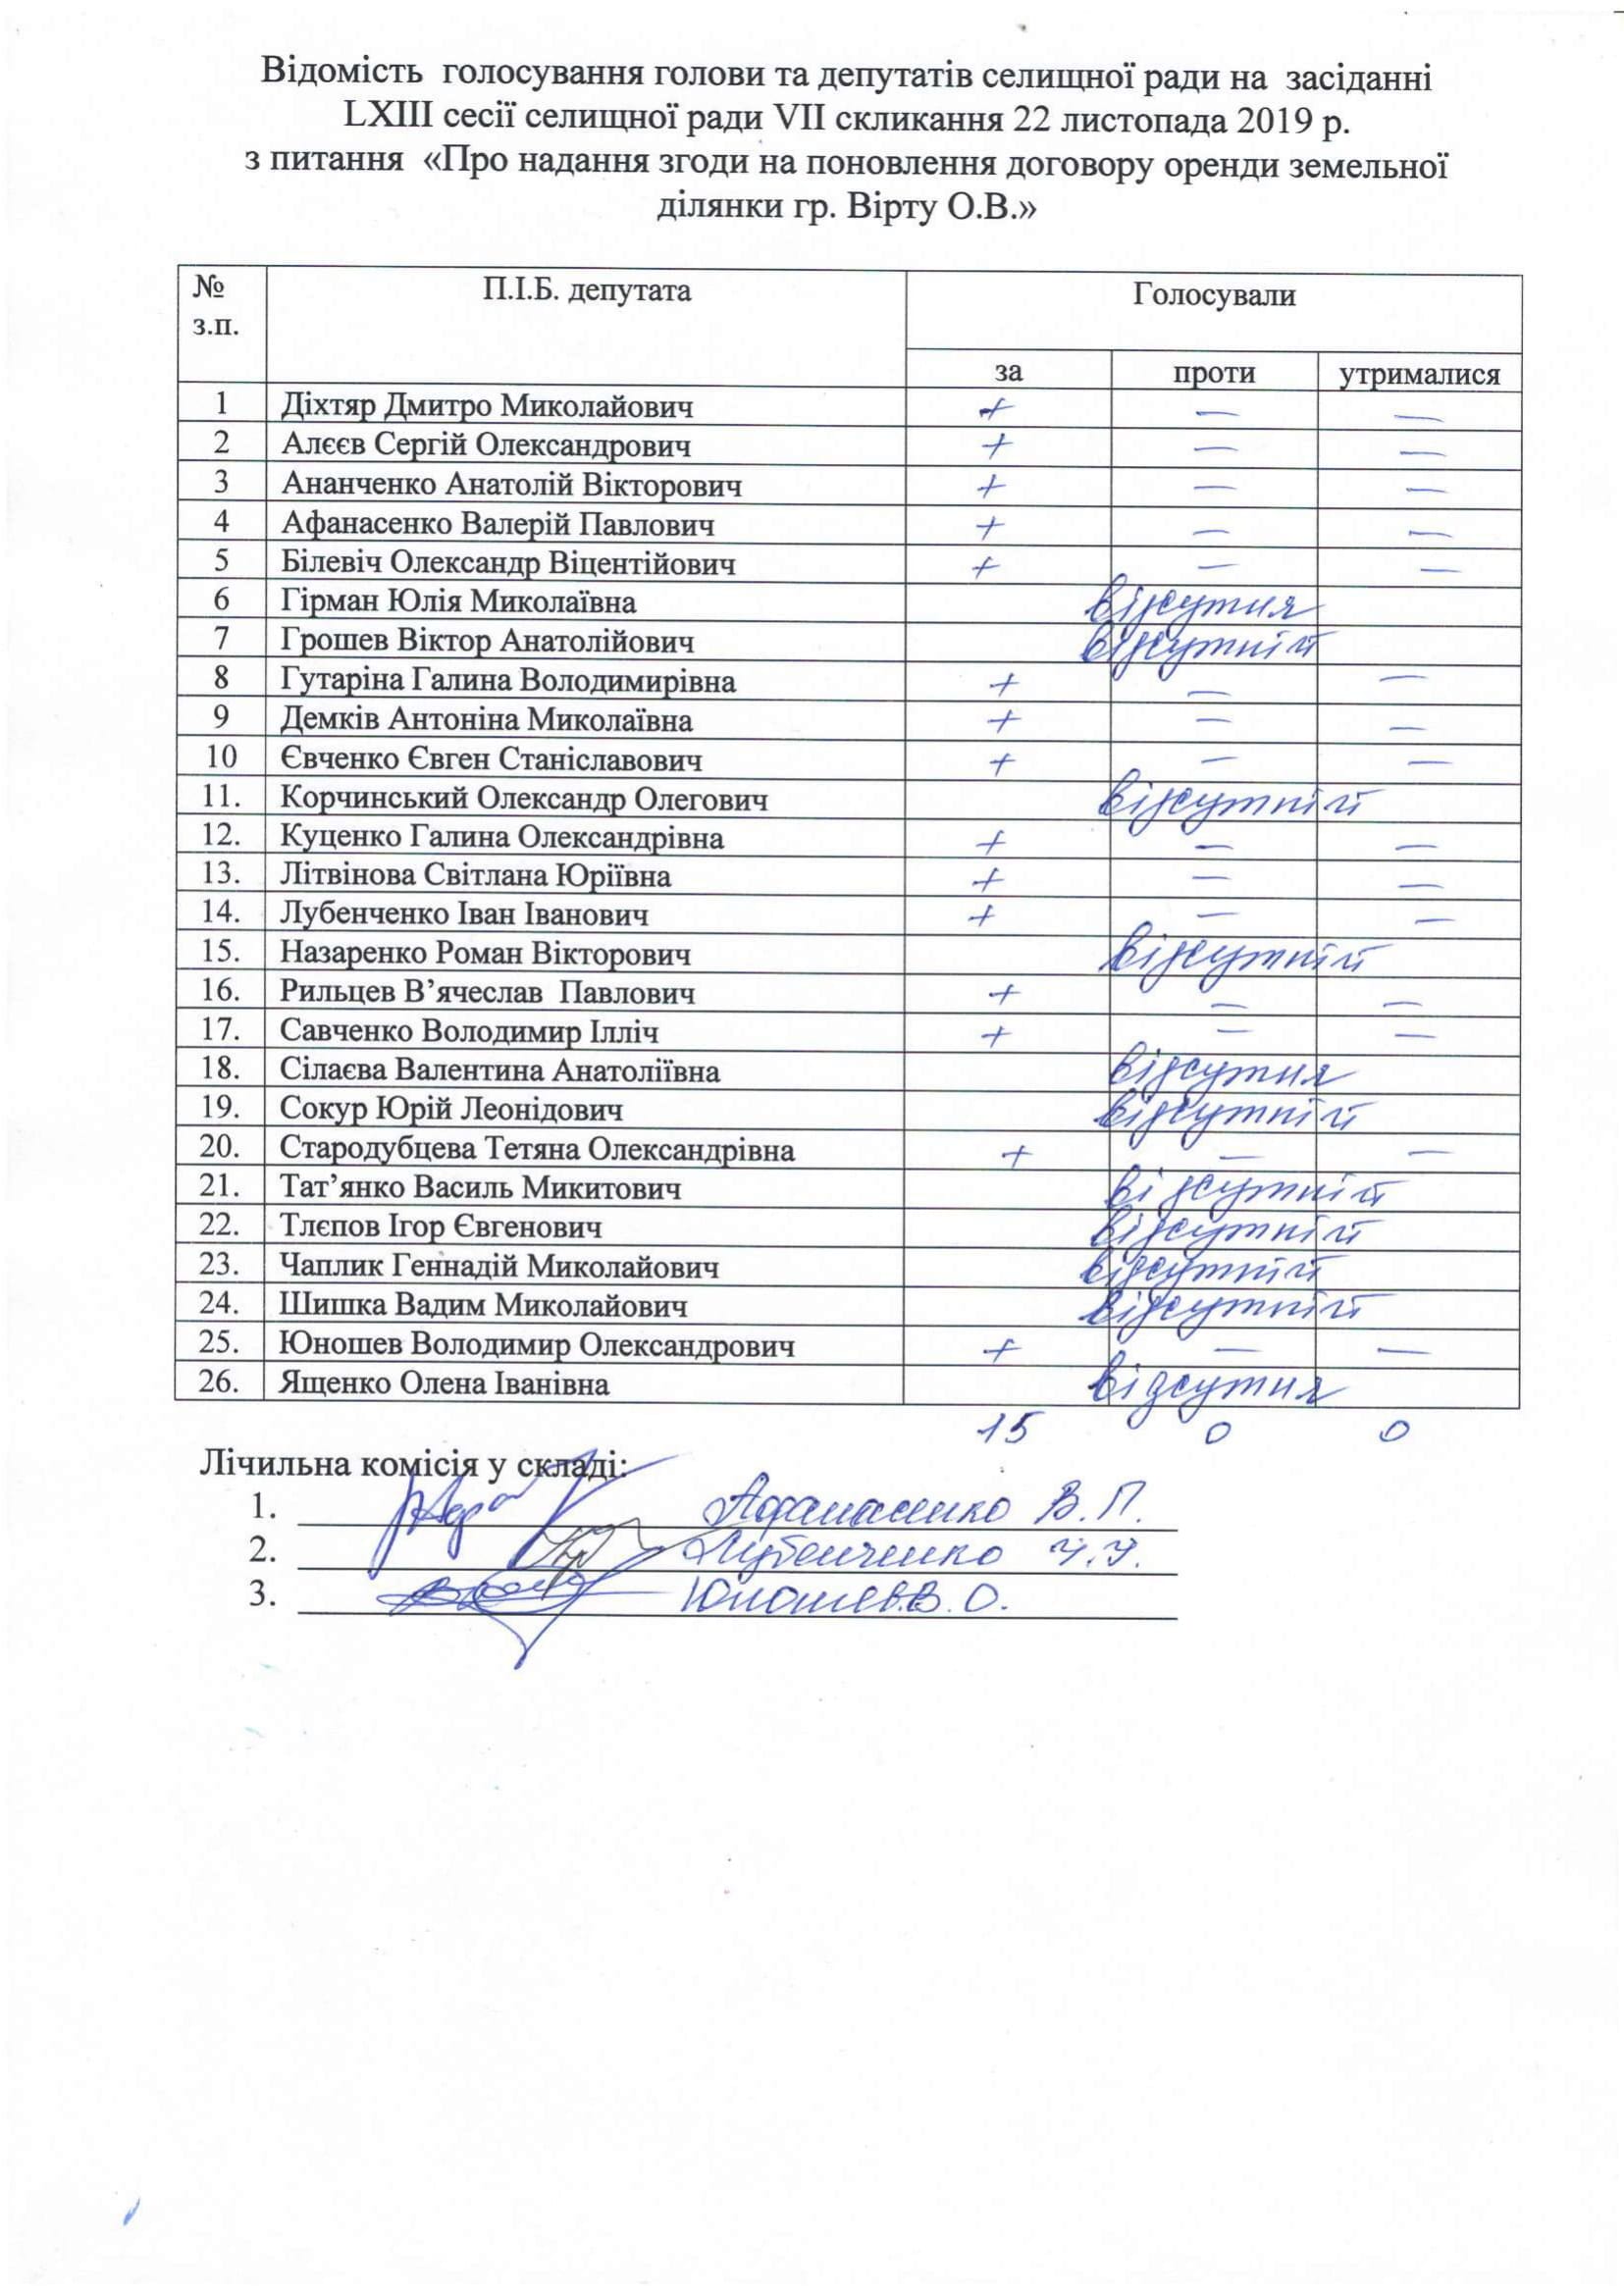 Відомість голосування голови та депутатів селищної ради на засіданні
LXIII сесії селищної ради VII скликання 22 листопада 2019 р.
з питання «Про надання згоди на поновлення договору оренди земельної
ділянки гр. Вірту О.В.»
№ з.п. П.І.Б. депутата Голосували
за проти утрималися
1 Діхтяр Дмитро Миколайович + — —
2 Алєєв Сергій Олександрович + — —
3 Ананченко Анатолій Вікторович + — —
4 Афанасенко Валерій Павлович + — —
5 Білевіч Олександр Віцентійович + — —
6 Гірман Юлія Миколаївна відсутня
7 Грошев Віктор Анатолійович відсутній
8 Гутаріна Галина Володимирівна + — —
9 Демків Антоніна Миколаївна + — —
10 Євченко Євген Станіславович + — —
11. Корчинський Олександр Олегович відсутній
12. Куценко Галина Олександрівна + — —
13. Літвінова Світлана Юріївна + — —
14. Лубенченко Іван Іванович + — —
15. Назаренко Роман Вікторович відсутній
16. Рильцев В’ячеслав Павлович + — —
17. Савченко Володимир Ілліч + — —
18. Сілаєва Валентина Анатоліївна відсутня
19. Сокур Юрій Леонідович відсутній
20. Стародубцева Тетяна Олександрівна + — —
21. Тат’янко Василь Микитович відсутній
22. Тлєпов Ігор Євгенович відсутній
23. Чаплик Геннадій Миколайович відсутній
24. Шишка Вадим Миколайович відсутній
25. Юношев Володимир Олександрович + — —
26. Ященко Олена Іванівна відсутня
15 0 0
Лічильна комісія у складі:
1. Афанасенко В.П.
2. Лубенченко І.І.
3. Юношев В.О.